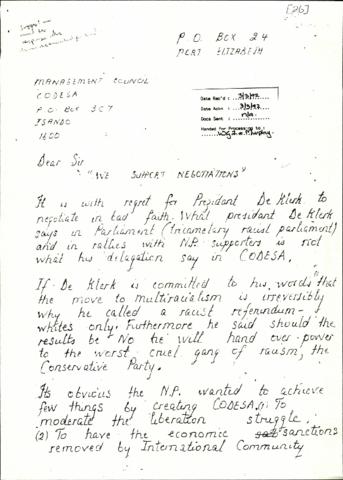 [26]
P.O. BOX 24
PORT ELIZABETH
MANAGEMENT COUNCIL
CODESA
P.O. Box 307
ISANDO
1600
Date Rec'd : 3/3/92
Date Ackn : 3/3/92
Docs Sent :
Handed for Processing to :
Dear Sir
"WE SUPPORT NEGOTIATIONS"
It is with regret for President De Klerk to
negotiate in bad faith. What president De Klerk
says in Parliament (tricameral racist parliament)
and in rallies with N.P. supporters is not
what his delegation say in CODESA.
If De Klerk is committed to his words "that
the move to multiracialism is irreversibly"
why he called a racist referendum -
whites only. Furthermore he said should the
results be "No" he will hand over power
to the worst cruel gang of racism, the
Conservative Party.
Its obvious the N.P. wanted to achieve
few things by creating CODESA. (1) To
moderate the liberation struggle.
(2) To have the economic sanctions
removed by International Community